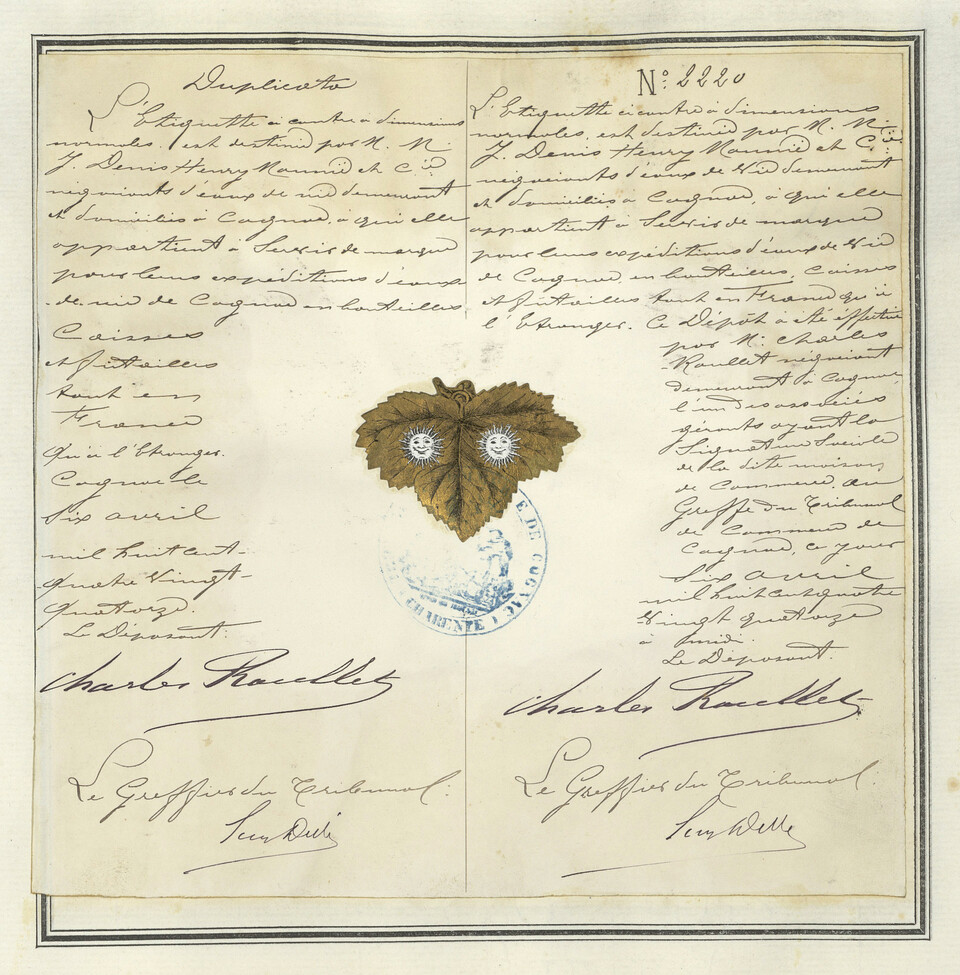 Duplicata
L'Etiquette ci contre à dimensions
normales, est destiné par M. M.
J. Denis Henry Mounié et C.ie
négociants d'eaux de vie demeurant
et domiciliés à Cognac, à qui elle
appartient à Servir de marque
pour leurs expéditions d'eaux
de vie de Cognac en bouteilles
Caisses
et futailles
tant en
France
qu'à l'Etranger.
Cognac le
Six avril
mil huit cent
quatre Vingt
quatorze.
Le Déposant:
Charles Roullet
Le Greffier du Tribunal:
N°: 2220
L'Etiquette ci contre à dimensions
normales, est destiné par M. M.
J. Denis Henry Mounié et C.ie
négociants d'eaux de Vie demeurant
et domiciliés à Cognac, à qui elle
appartient à Servir de marque
pour leurs expéditions d'eaux de Vie
de Cognac en bouteilles, Caisses
et futailles tant en France qu'à
l'Etranger. Ce Dépôt a été effectué
par M. Charles
Roullet négociant
demeurant à Cognac,
l'un des associés
gérants ayant la
Signature Sociale
de la dite maison
de Commerce, au
Greffe du Tribunal
de Commerce de
Cognac, ce jour
Six avril
mil huit cent quatre
Vingt quatorze
à midi.
Le Déposant.
Charles Roullet
Le Greffier du Tribunal:
E DE COGNAC
CHARENTE